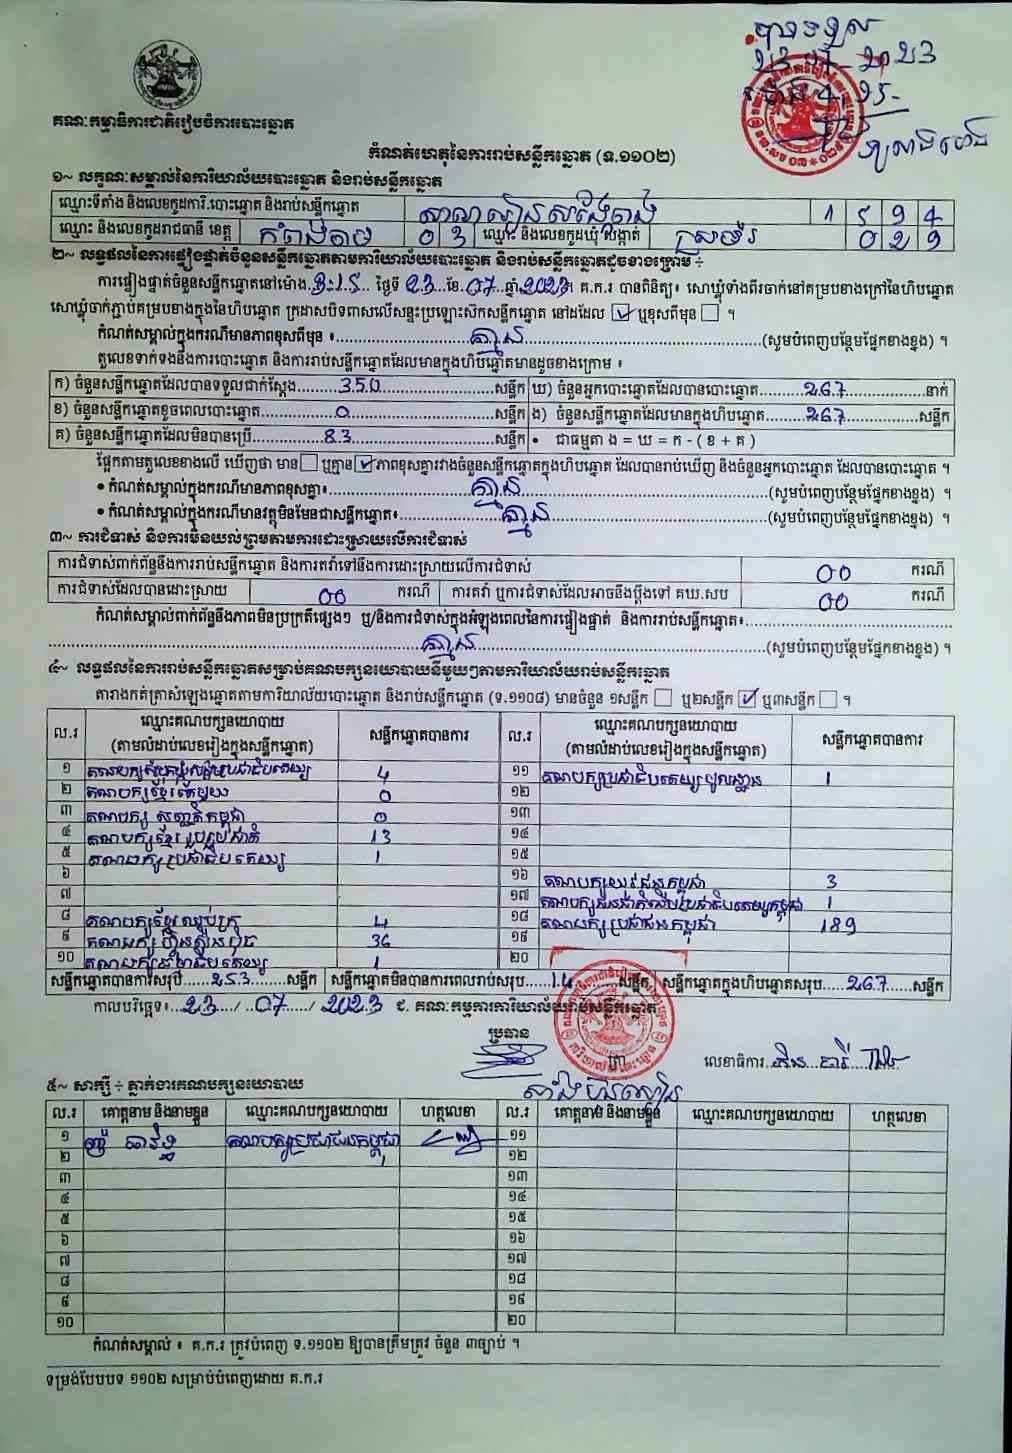 បានទទួល
23 07 2023
ម៉ោង 4:25
គណៈកម្មាធិការជាតិរៀបចំការបោះឆ្នោត
កំណត់ហេតុនៃការរាប់សន្លឹកឆ្នោត (ទ.១១០២)
១~ លក្ខណៈសម្គាល់នៃការិយាល័យបោះឆ្នោត និងរាប់សន្លឹកឆ្នោត
ឈ្មោះទីតាំង និងលេខកូដការិ.បោះឆ្នោត និងរាប់សន្លឹកឆ្នោត សាលារៀន 1 5 9 4
ឈ្មោះ និងលេខកូដរាជធានី ខេត្ត កំពង់ចាម 0 3 ឈ្មោះ និងលេខកូដឃុំ សង្កាត់ 0 2 9
២~ លទ្ធផលនៃការផ្ទៀងផ្ទាត់ចំនួនសន្លឹកឆ្នោតតាមការិយាល័យបោះឆ្នោត និងរាប់សន្លឹកឆ្នោតដូចខាងក្រោម ÷
ការផ្ទៀងផ្ទាត់ចំនួនសន្លឹកឆ្នោតនៅម៉ោង 3:15 ថ្ងៃទី 23 ខែ 07 ឆ្នាំ 2023 ។ គ.ក.រ បានពិនិត្យ៖ សោឃ្លុំទាំងពីរចាក់នៅគម្របខាងក្រៅនៃហិបឆ្នោត
សោឃ្លុំចាក់ភ្ជាប់គម្របខាងក្នុងនៃហិបឆ្នោត ក្រដាសបិទពាសលើសន្ទះប្រឡោះសិកសន្លឹកឆ្នោត នៅដដែល ☑ ឬខុសពីមុន ☐ ។
កំណត់សម្គាល់ក្នុងករណីមានភាពខុសពីមុន ៖ គ្មាន (សូមបំពេញបន្ថែមផ្នែកខាងខ្នង) ។
តួលេខទាក់ទងនឹងការបោះឆ្នោត និងការរាប់សន្លឹកឆ្នោតដែលមានក្នុងហិបឆ្នោតមានដូចខាងក្រោម ៖
ក) ចំនួនសន្លឹកឆ្នោតដែលបានទទួលជាក់ស្តែង 350 សន្លឹក ឃ) ចំនួនអ្នកបោះឆ្នោតដែលបានបោះឆ្នោត 267 នាក់
ខ) ចំនួនសន្លឹកឆ្នោតខូចពេលបោះឆ្នោត 0 សន្លឹក ង) ចំនួនសន្លឹកឆ្នោតដែលមានក្នុងហិបឆ្នោត 267 សន្លឹក
គ) ចំនួនសន្លឹកឆ្នោតដែលមិនបានប្រើ 83 សន្លឹក • ជាធម្មតា ង = ឃ = ក - ( ខ + គ )
ផ្អែកតាមតួលេខខាងលើ ឃើញថា មាន ☐ ឬគ្មាន ☑ ភាពខុសគ្នារវាងចំនួនសន្លឹកឆ្នោតក្នុងហិបឆ្នោត ដែលបានរាប់ឃើញ និងចំនួនអ្នកបោះឆ្នោត ដែលបានបោះឆ្នោត ។
• កំណត់សម្គាល់ក្នុងករណីមានភាពខុសគ្នា៖ គ្មាន (សូមបំពេញបន្ថែមផ្នែកខាងខ្នង) ។
• កំណត់សម្គាល់ក្នុងករណីមានវត្ថុមិនមែនជាសន្លឹកឆ្នោត៖ គ្មាន (សូមបំពេញបន្ថែមផ្នែកខាងខ្នង) ។
៣~ ការជំទាស់ និងការមិនយល់ព្រមតាមការដោះស្រាយលើការជំទាស់
ការជំទាស់ពាក់ព័ន្ធនឹងការរាប់សន្លឹកឆ្នោត និងការតវ៉ាទៅនឹងការដោះស្រាយលើការជំទាស់ 00 ករណី
ការជំទាស់ដែលបានដោះស្រាយ 00 ករណី ការតវ៉ា ឬការជំទាស់ដែលអាចនឹងប្តឹងទៅ គឃ.សប 00 ករណី
កំណត់សម្គាល់ពាក់ព័ន្ធនឹងភាពមិនប្រក្រតីផ្សេងៗ ឬ/និងការជំទាស់ក្នុងអំឡុងពេលនៃការផ្ទៀងផ្ទាត់ និងការរាប់សន្លឹកឆ្នោត៖
គ្មាន (សូមបំពេញបន្ថែមផ្នែកខាងខ្នង) ។
៤~ លទ្ធផលនៃការរាប់សន្លឹកឆ្នោតសម្រាប់គណបក្សនយោបាយនីមួយៗតាមការិយាល័យរាប់សន្លឹកឆ្នោត
តារាងកត់ត្រាសំឡេងឆ្នោតតាមការិយាល័យបោះឆ្នោត និងរាប់សន្លឹកឆ្នោត (ទ.១១០៨) មានចំនួន ១សន្លឹក ☐ ឬ២សន្លឹក ☑ ឬ៣សន្លឹក ☐ ។
ល.រ ឈ្មោះគណបក្សនយោបាយ (តាមលំដាប់លេខរៀងក្នុងសន្លឹកឆ្នោត) សន្លឹកឆ្នោតបានការ ល.រ ឈ្មោះគណបក្សនយោបាយ (តាមលំដាប់លេខរៀងក្នុងសន្លឹកឆ្នោត) សន្លឹកឆ្នោតបានការ
១ គណបក្សសំបុកឃ្មុំសង្គមប្រជាធិបតេយ្យ 4 ១១ គណបក្សប្រជាធិបតេយ្យមូលដ្ឋាន 1
២ គណបក្សខ្មែរតែមួយ 0 ១២
៣ គណបក្ស សញ្ជាតិកម្ពុជា 0 ១៣
៤ គណបក្សខ្មែរ រួបរួមជាតិ 13 ១៤
៥ គណបក្ស ប្រជាធិបតេយ្យ 1 ១៥
៦ ១៦ គណបក្សយុវជនកម្ពុជា 3
៧ ១៧ 1
៨ គណបក្សខ្មែរឈប់ក្រ 4 ១៨ គណបក្សប្រជាជនកម្ពុជា 189
៩ គណបក្ស ហ្វ៊ុនស៊ិនប៉ិច 36 ១៩
១០ 1 ២០
សន្លឹកឆ្នោតបានការសរុប 253 សន្លឹក សន្លឹកឆ្នោតមិនបានការពេលរាប់សរុប 14 សន្លឹក សន្លឹកឆ្នោតក្នុងហិបឆ្នោតសរុប 267 សន្លឹក
កាលបរិច្ឆេទ៖ 23 / 07 / 2023 ជ. គណៈកម្មការការិយាល័យរាប់សន្លឹកឆ្នោត
ប្រធាន
លេខាធិការ
៥~ សាក្សី ÷ ភ្នាក់ងារគណបក្សនយោបាយ
ល.រ គោត្តនាម និងនាមខ្លួន ឈ្មោះគណបក្សនយោបាយ ហត្ថលេខា ល.រ គោត្តនាម និងនាមខ្លួន ឈ្មោះគណបក្សនយោបាយ ហត្ថលេខា
១ គណបក្សប្រជាជនកម្ពុជា ១១
២ ១២
៣ ១៣
៤ ១៤
៥ ១៥
៦ ១៦
៧ ១៧
៨ ១៨
៩ ១៩
១០ ២០
កំណត់សម្គាល់ ៖ គ.ក.រ ត្រូវបំពេញ ទ.១១០២ ឱ្យបានត្រឹមត្រូវ ចំនួន ៣ច្បាប់ ។
ទម្រង់បែបបទ ១១០២ សម្រាប់បំពេញដោយ គ.ក.រ